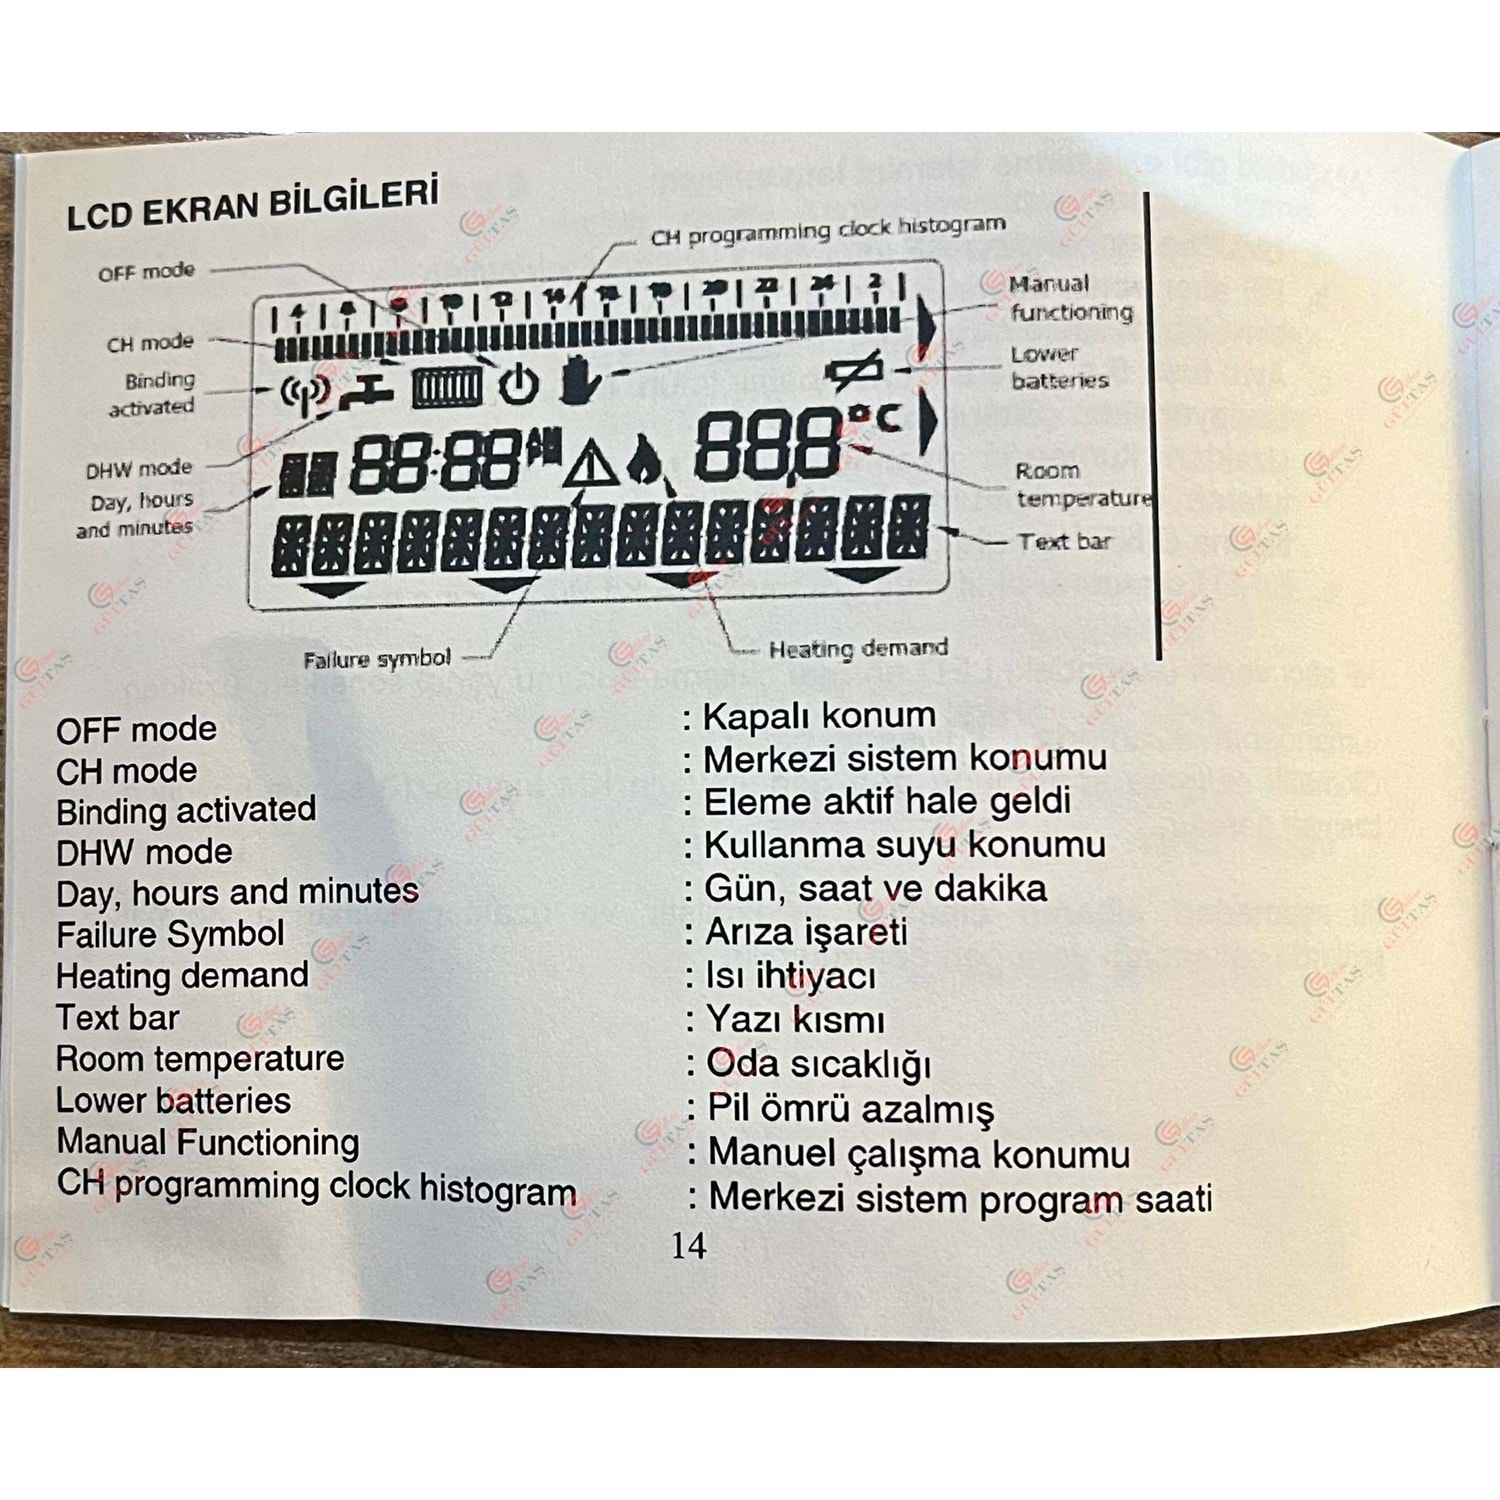 LCD EKRAN BİLGİLERİ
CH programming clock histogram
OFF mode
4 6 8 10 12 14 16 18 20 22 24 2
Manual
functioning
CH mode
Lower
batteries
Binding
activated
88:88 AM
888 °C
DHW mode
Day, hours
and minutes
Room
temperature
Text bar
Failure symbol
Heating demand
OFF mode : Kapalı konum
CH mode : Merkezi sistem konumu
Binding activated : Eleme aktif hale geldi
DHW mode : Kullanma suyu konumu
Day, hours and minutes : Gün, saat ve dakika
Failure Symbol : Arıza işareti
Heating demand : Isı ihtiyacı
Text bar : Yazı kısmı
Room temperature : Oda sıcaklığı
Lower batteries : Pil ömrü azalmış
Manual Functioning : Manuel çalışma konumu
CH programming clock histogram : Merkezi sistem program saati
14